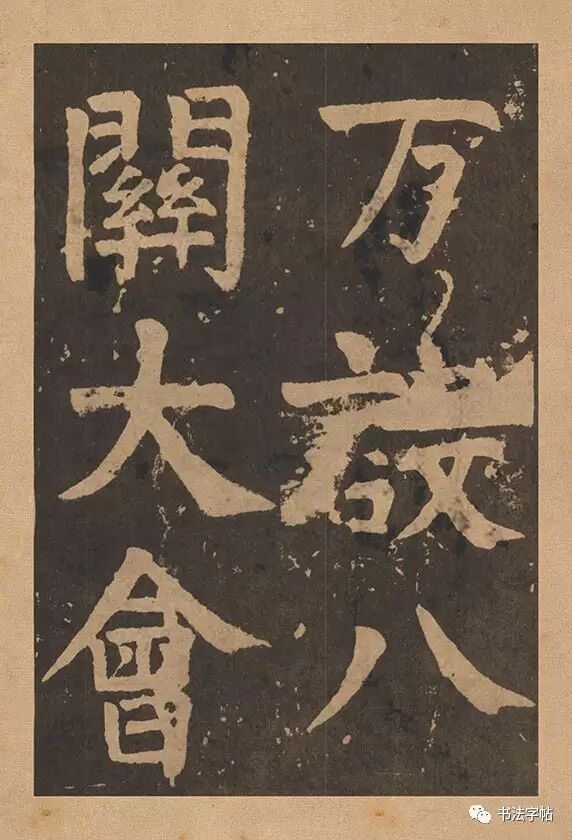 万設八
關大會
书法字帖